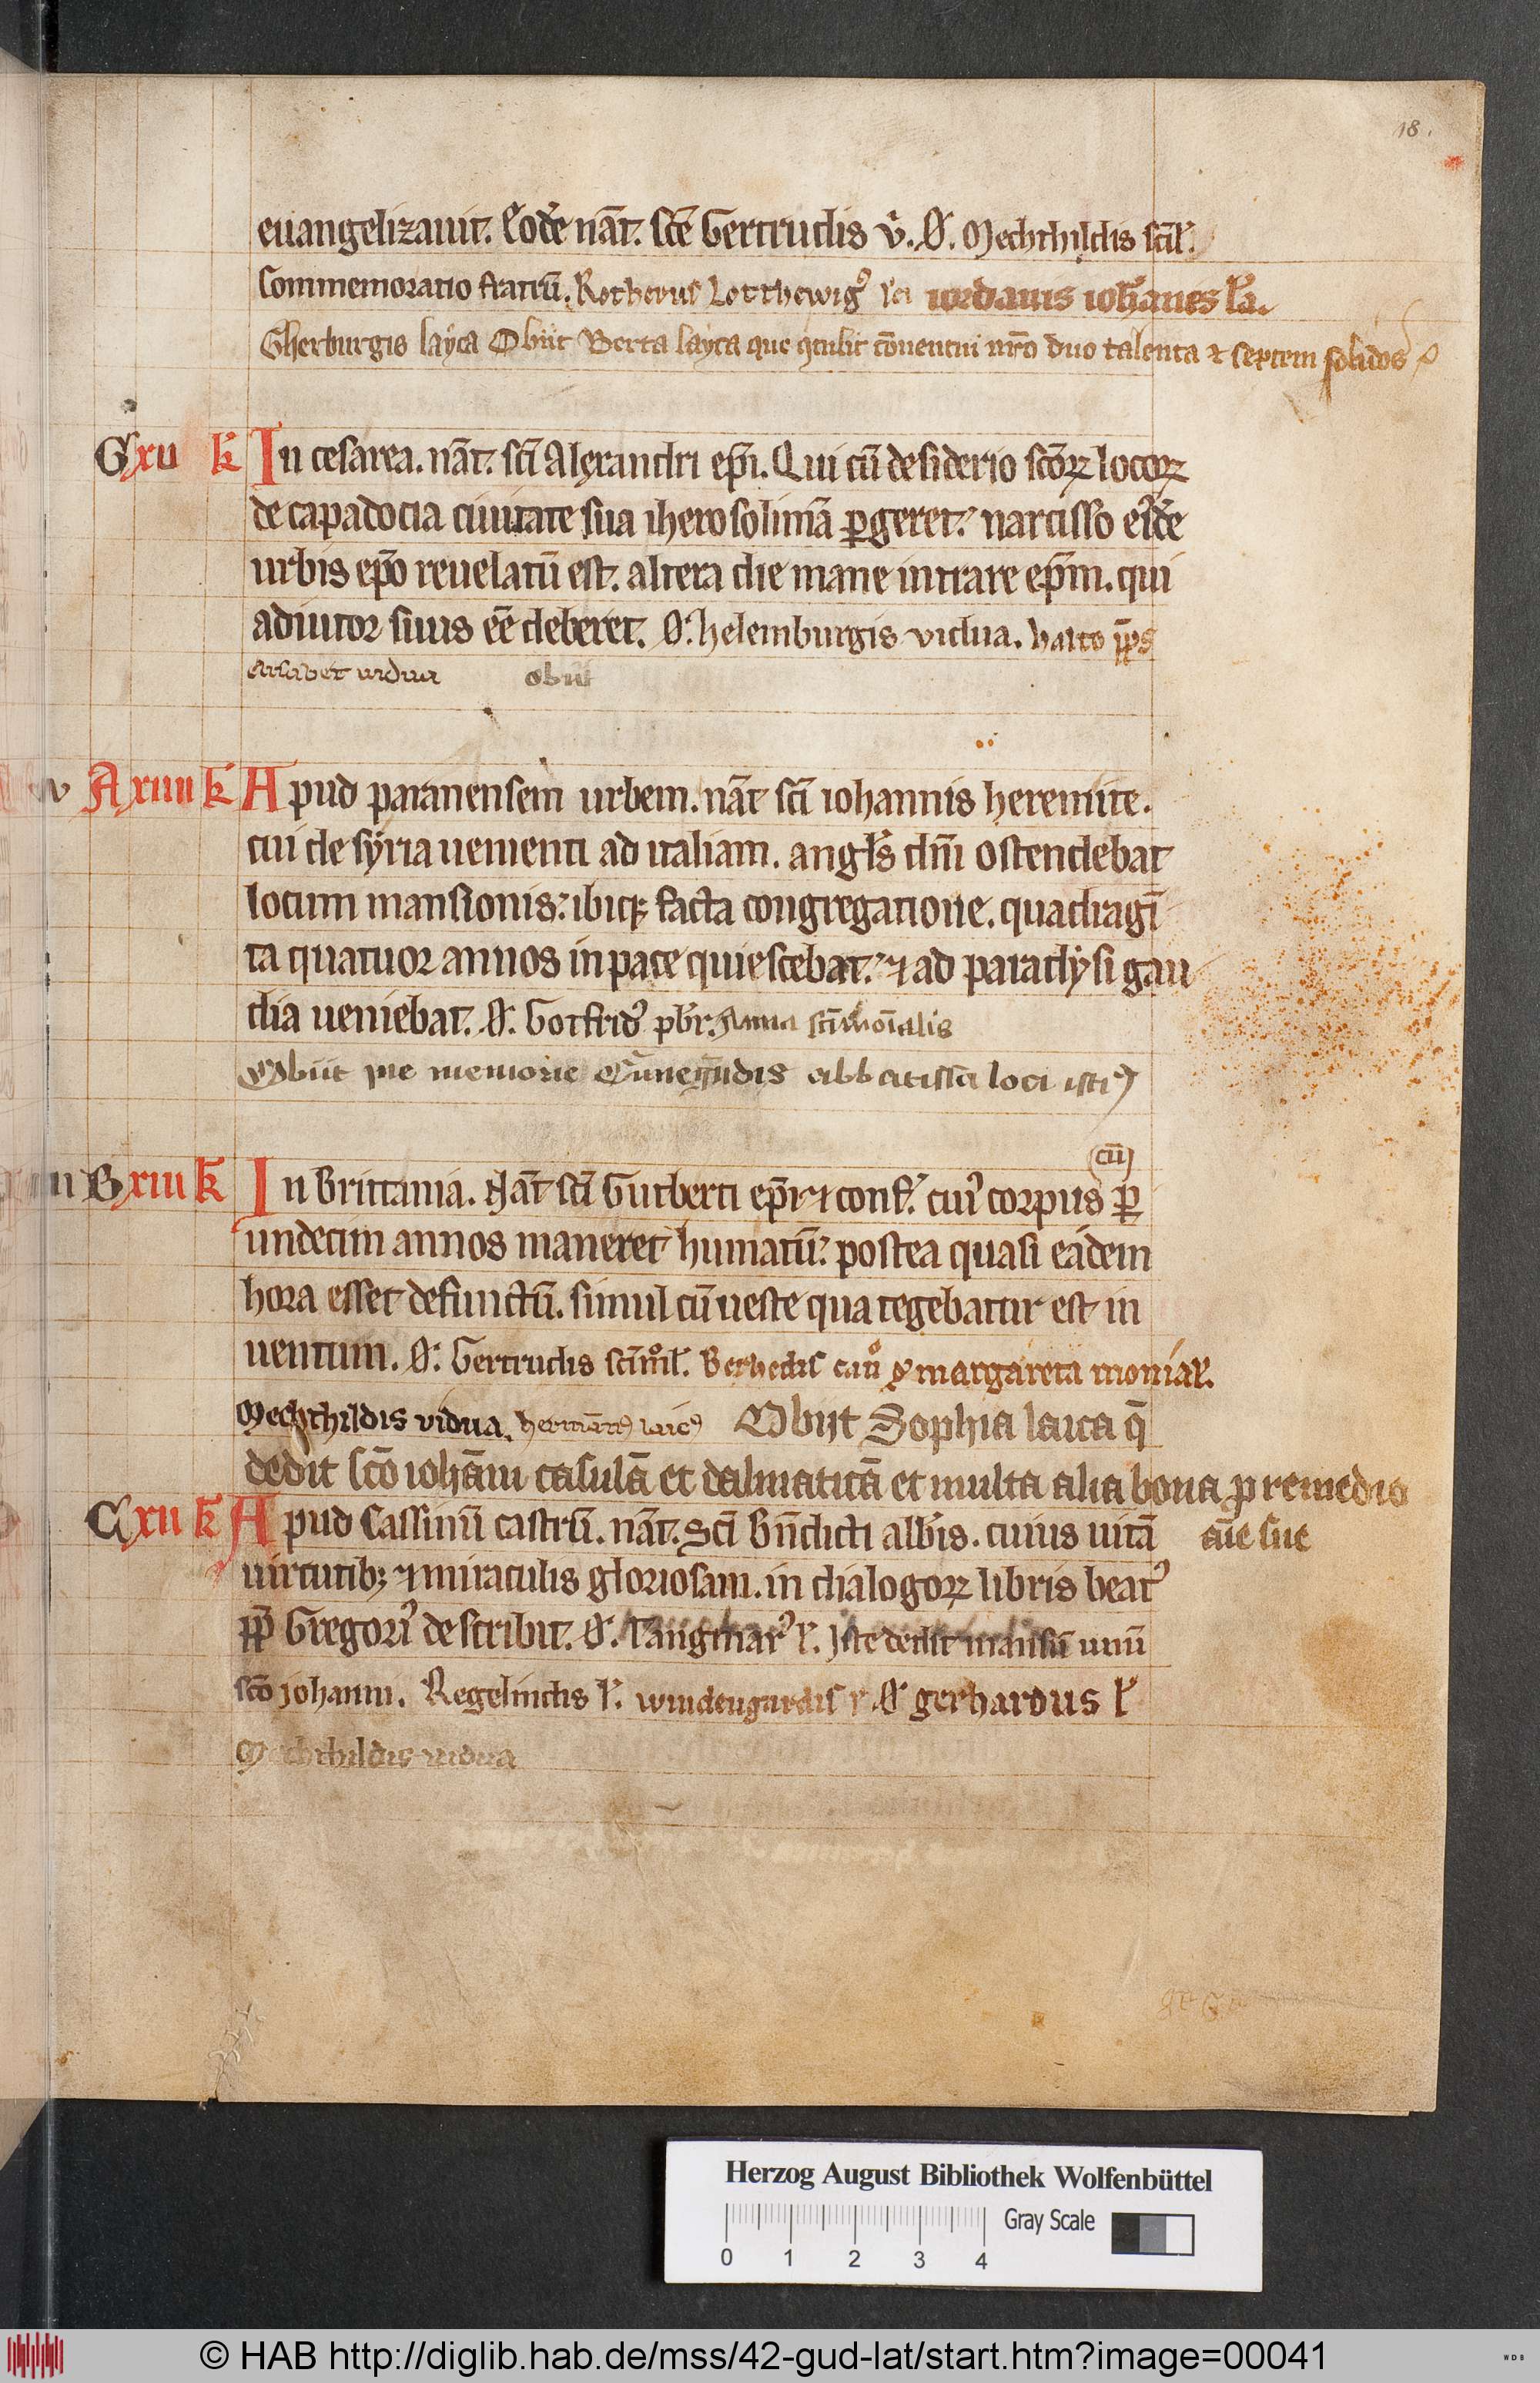 18.
euangelizauit. Eodē nāt. scē Gertrudis v̄. O. Mechthildis scīl.
Commemoratio fratrū. Rotherus iordanis iohānes la.
Gherburgis layca Obiit Berta layca que ꝯtulit cōuentui nr̄o duo talenta ⁊ septem solidos
G xu k In cesarea. nāt. scī Alexandri ep̄i. Qui cū desiderio scōꝝ locoꝝ
de capadocia ciuitate sua iherosolimā ꝑgeret. narcisso eidē
urbis ep̄o reuelatū est. altera die mane intrare ep̄m. qui
adiutor suus eē deberet. O. helemburgis vidua.
vidua obiit
v A xiiii k Apud paranensem urbem. nāt scī iohannis heremite.
cui de syria uenienti ad italiam. angls dn̄i ostendebat
locum mansionis. ibiqꝫ facta congregatione. quadragī
ta quatuor annos in pace quiescebat. ⁊ ad paradysi gau
dia ueniebat. O. Gotfridꝰ pbr. Anna scīmoīalis
Obiit pie memorie Cunegūdis abbatissa loci istiꝰ
ii B xiii k In Brittania. Nāt scī Gutberti ep̄i ⁊ conf. cuiꝰ corpus (cū) ꝑ
undecim annos maneret humatū. postea quasi eadem
hora esset defunctū. simul cū ueste qua tegebatur est in
uentum. O. Gertrudis scīmōīl. margareta monial.
Mechthildis vidua. hermānꝰ laicꝰ Obijt Sophia laica q̄
dedit scō iohāni casulā et dalmaticā et multa alia bona ꝓ remedio
aīe sue
C xii k Apud Cassinū castrū. nāt. Scī Bn̄dicti abbis. cuius uitā
uirtutibꝫ ⁊ miraculis gloriosam. in dialogoꝝ libris beatꝰ
pp̄ Gregoriꝰ describit. O. Tangmarꝰ l. Iste dedit mansū unū
scō johanni. Regelindis l. windengardis l. O gerhardus l
Mechthildis vidua
Herzog August Bibliothek Wolfenbüttel
0 1 2 3 4 Gray Scale
© HAB http://diglib.hab.de/mss/42-gud-lat/start.htm?image=00041
WDB